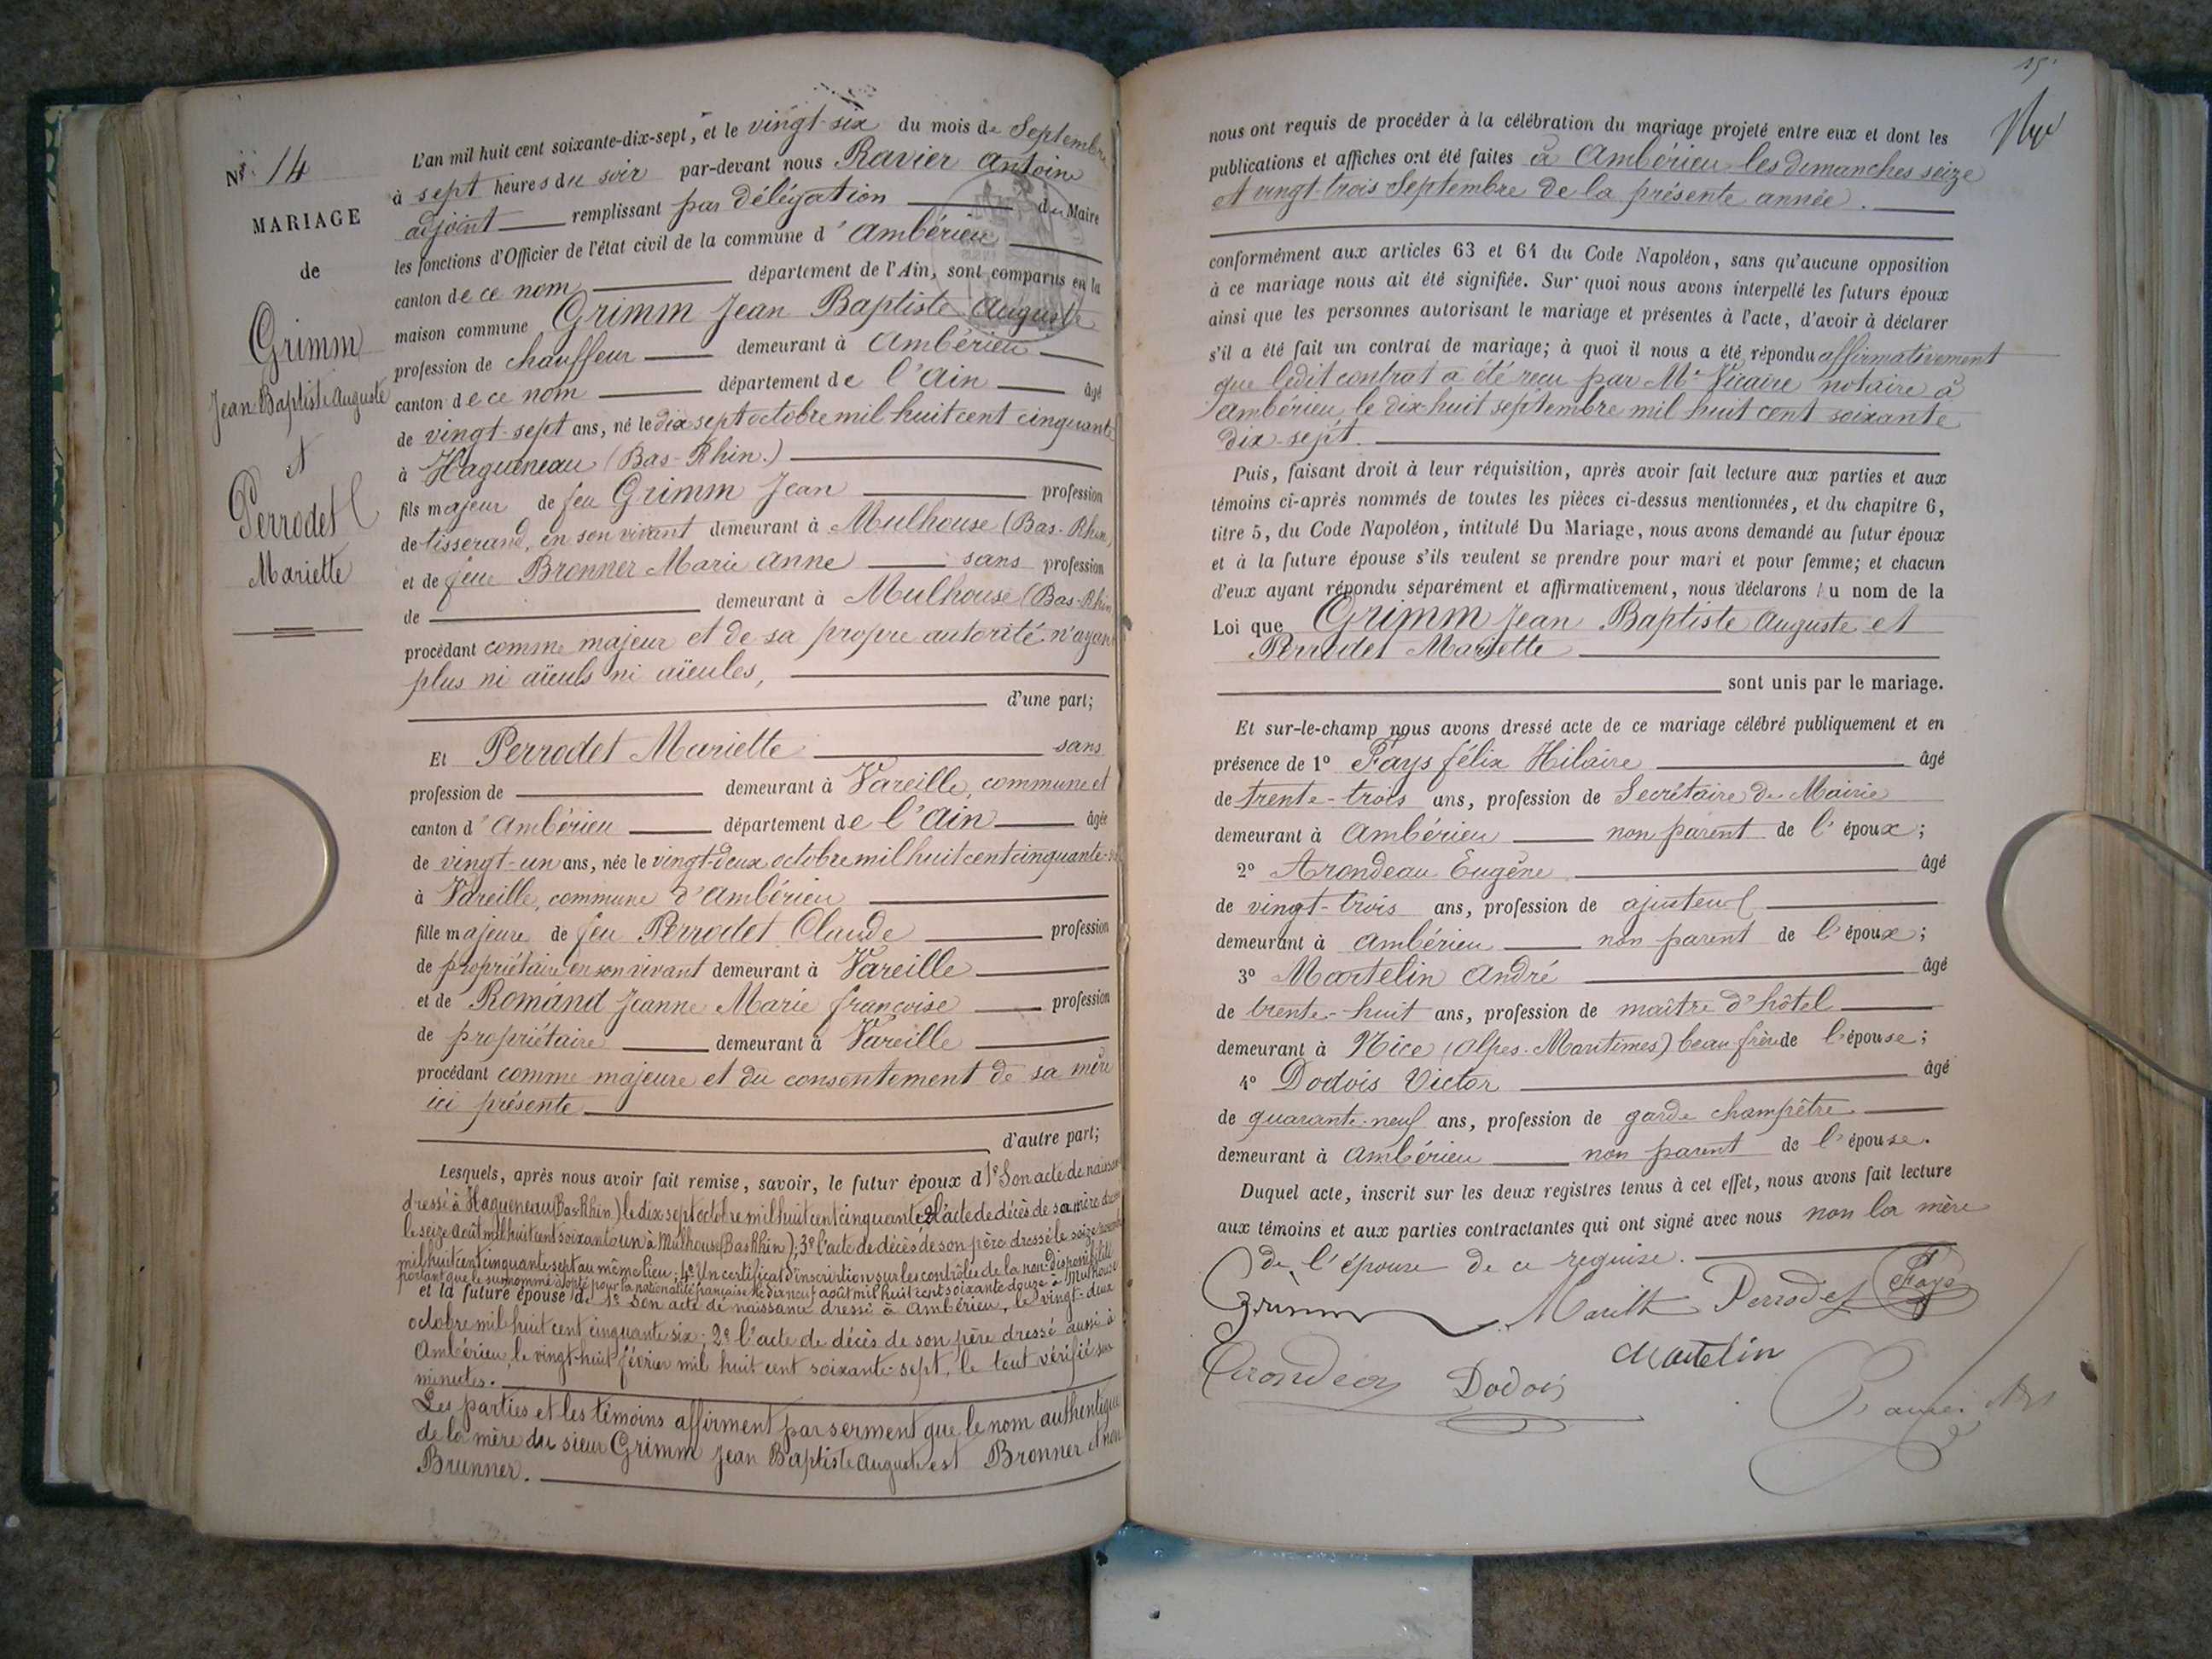 N° 14
MARIAGE
de
Grimm
Jean Baptiste Auguste
et
Perrodet
Mariette
L'an mil huit cent soixante-dix-sept, et le vingt-six du mois de Septembre
à sept heures du soir par-devant nous Ravier Antoine
adjoint remplissant par délégation du Maire
les fonctions d'Officier de l'état civil de la commune d'Ambérieu
canton de ce nom département de l'Ain, sont comparus en la
maison commune Grimm Jean Baptiste Auguste
profession de chauffeur demeurant à Ambérieu
canton de ce nom département de l'Ain âgé
de vingt-sept ans, né le dix sept octobre mil huit cent cinquante
à Hagueneau (Bas-Rhin.)
fils majeur de feu Grimm Jean profession
de tisserand, en son vivant demeurant à Mulhouse (Bas-Rhin)
et de feue Bronner Marie Anne sans profession
de demeurant à Mulhouse (Bas-Rhin
procédant comme majeur et de sa propre autorité n'ayant
plus ni aïeuls ni aïeules,
d'une part;
Et Perrodet Mariette sans
profession de demeurant à Vareille, commune et
canton d'Ambérieu département de l'Ain âgée
de vingt-un ans, née le vingt-deux octobre mil huit cent cinquante-six
à Vareille, commune d'Ambérieu
fille majeure de feu Perrodet Claude profession
de propriétaire en son vivant demeurant à Vareille
et de Romand Jeanne Marie françoise profession
de propriétaire demeurant à Vareille
procédant comme majeure et du consentement de sa mère
ici présente
d'autre part;
Lesquels, après nous avoir fait remise, savoir, le futur époux d 1° Son acte de naissance
dressé à Hagueneau (Bas-Rhin) le dix sept octobre mil huit cent cinquante; 2° l'acte de décès de sa mère dressé
le seize août mil huit cent soixante un à Mulhouse (Bas Rhin); 3° l'acte de décès de son père dressé le seize novembre
mil huit cent cinquante sept au même lieu; 4° Un certificat d'inscription sur les contrôles de la non-disponibilité
portant que le surnommé a opté pour la nationalité française le dix neuf août mil huit cent soixante douze à Mulhouse
et la future épouse d 1° Son acte de naissance dressé à Ambérieu, le vingt-deux
octobre mil huit cent cinquante six; 2° l'acte de décès de son père dressé aussi à
Ambérieu, le vingt-huit février mil huit cent soixante-sept, le tout vérifié sur
minutes.
Les parties et les témoins affirment par serment que le nom authentique
de la mère du sieur Grimm Jean Baptiste Auguste est Bronner et non
Brunner.
15
nous ont requis de procéder à la célébration du mariage projeté entre eux et dont les
publications et affiches ont été faites à Ambérieu les dimanches seize
et vingt-trois Septembre de la présente année.
conformément aux articles 63 et 64 du Code Napoléon, sans qu'aucune opposition
à ce mariage nous ait été signifiée. Sur quoi nous avons interpellé les futurs époux
ainsi que les personnes autorisant le mariage et présentes à l'acte, d'avoir à déclarer
s'il a été fait un contrat de mariage; à quoi il nous a été répondu affirmativement
que ledit contrat a été reçu par Me Vicaire notaire à
Ambérieu le dix huit septembre mil huit cent soixante
dix-sept.
Puis, faisant droit à leur réquisition, après avoir fait lecture aux parties et aux
témoins ci-après nommés de toutes les pièces ci-dessus mentionnées, et du chapitre 6,
titre 5, du Code Napoléon, intitulé Du Mariage, nous avons demandé au futur époux
et à la future épouse s'ils veulent se prendre pour mari et pour femme; et chacun
d'eux ayant répondu séparément et affirmativement, nous déclarons Au nom de la
Loi que Grimm Jean Baptiste Auguste et
Perrodet Mariette
sont unis par le mariage.
Et sur-le-champ nous avons dressé acte de ce mariage célébré publiquement et en
présence de 1° Fays félix Hilaire âgé
de trente-trois ans, profession de Secrétaire de Mairie
demeurant à Ambérieu non parent de l'époux;
2° Arondeau Eugène âgé
de vingt-trois ans, profession de ajusteur
demeurant à Ambérieu non parent de l'époux;
3° Martelin André âgé
de trente-huit ans, profession de maître d'hôtel
demeurant à Nice (Alpes-Maritimes) beau-frère de l'épouse;
4° Dodois Victor âgé
de quarante-neuf ans, profession de garde champêtre
demeurant à Ambérieu non parent de l'épouse.
Duquel acte, inscrit sur les deux registres tenus à cet effet, nous avons fait lecture
aux témoins et aux parties contractantes qui ont signé avec nous non la mère
de l'épouse de ce requise.
Grimm Perrodet Fays
Martelin
Arondeau Dodois